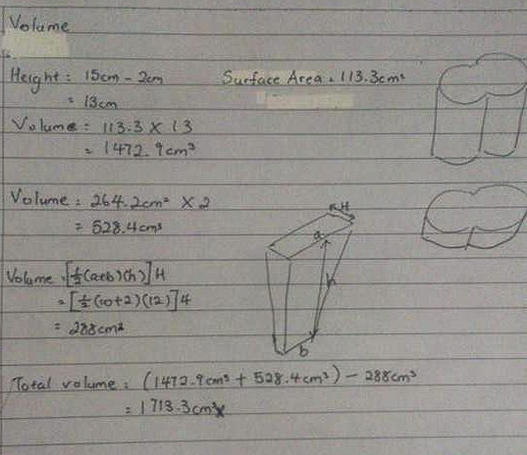 Volume
Height: 15cm - 2cm Surface Area = 113.3cm²
= 13cm
Volume = 113.3 X 13
= 1472.9cm³
Volume = 264.2cm² X 2
= 528.4cm³
H
a
h
b
Volume = [½(a+b)(h)]H
= [½(10+2)(12)]4
= 288cm²
Total volume = (1472.9cm³ + 528.4cm³) - 288cm³
= 1713.3cm³